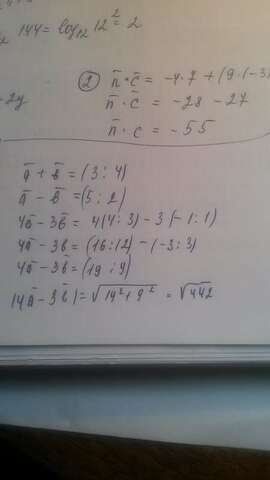 144 = log₁₂ 12² = 2
-2y
② n̄ · c̄ = -4·7 + (9·(-3)
n̄ · c̄ = -28 - 27
n̄ · c = -55
ā + b̄ = (3 ; 4)
ā - b̄ = (5 ; 2)
4ā - 3b̄ = 4(4 ; 3) - 3(-1 ; 1)
4ā - 3b̄ = (16 ; 12) - (-3 ; 3)
4ā - 3b̄ = (19 ; 9)
|4ā - 3b̄| = √19² + 9² = √442